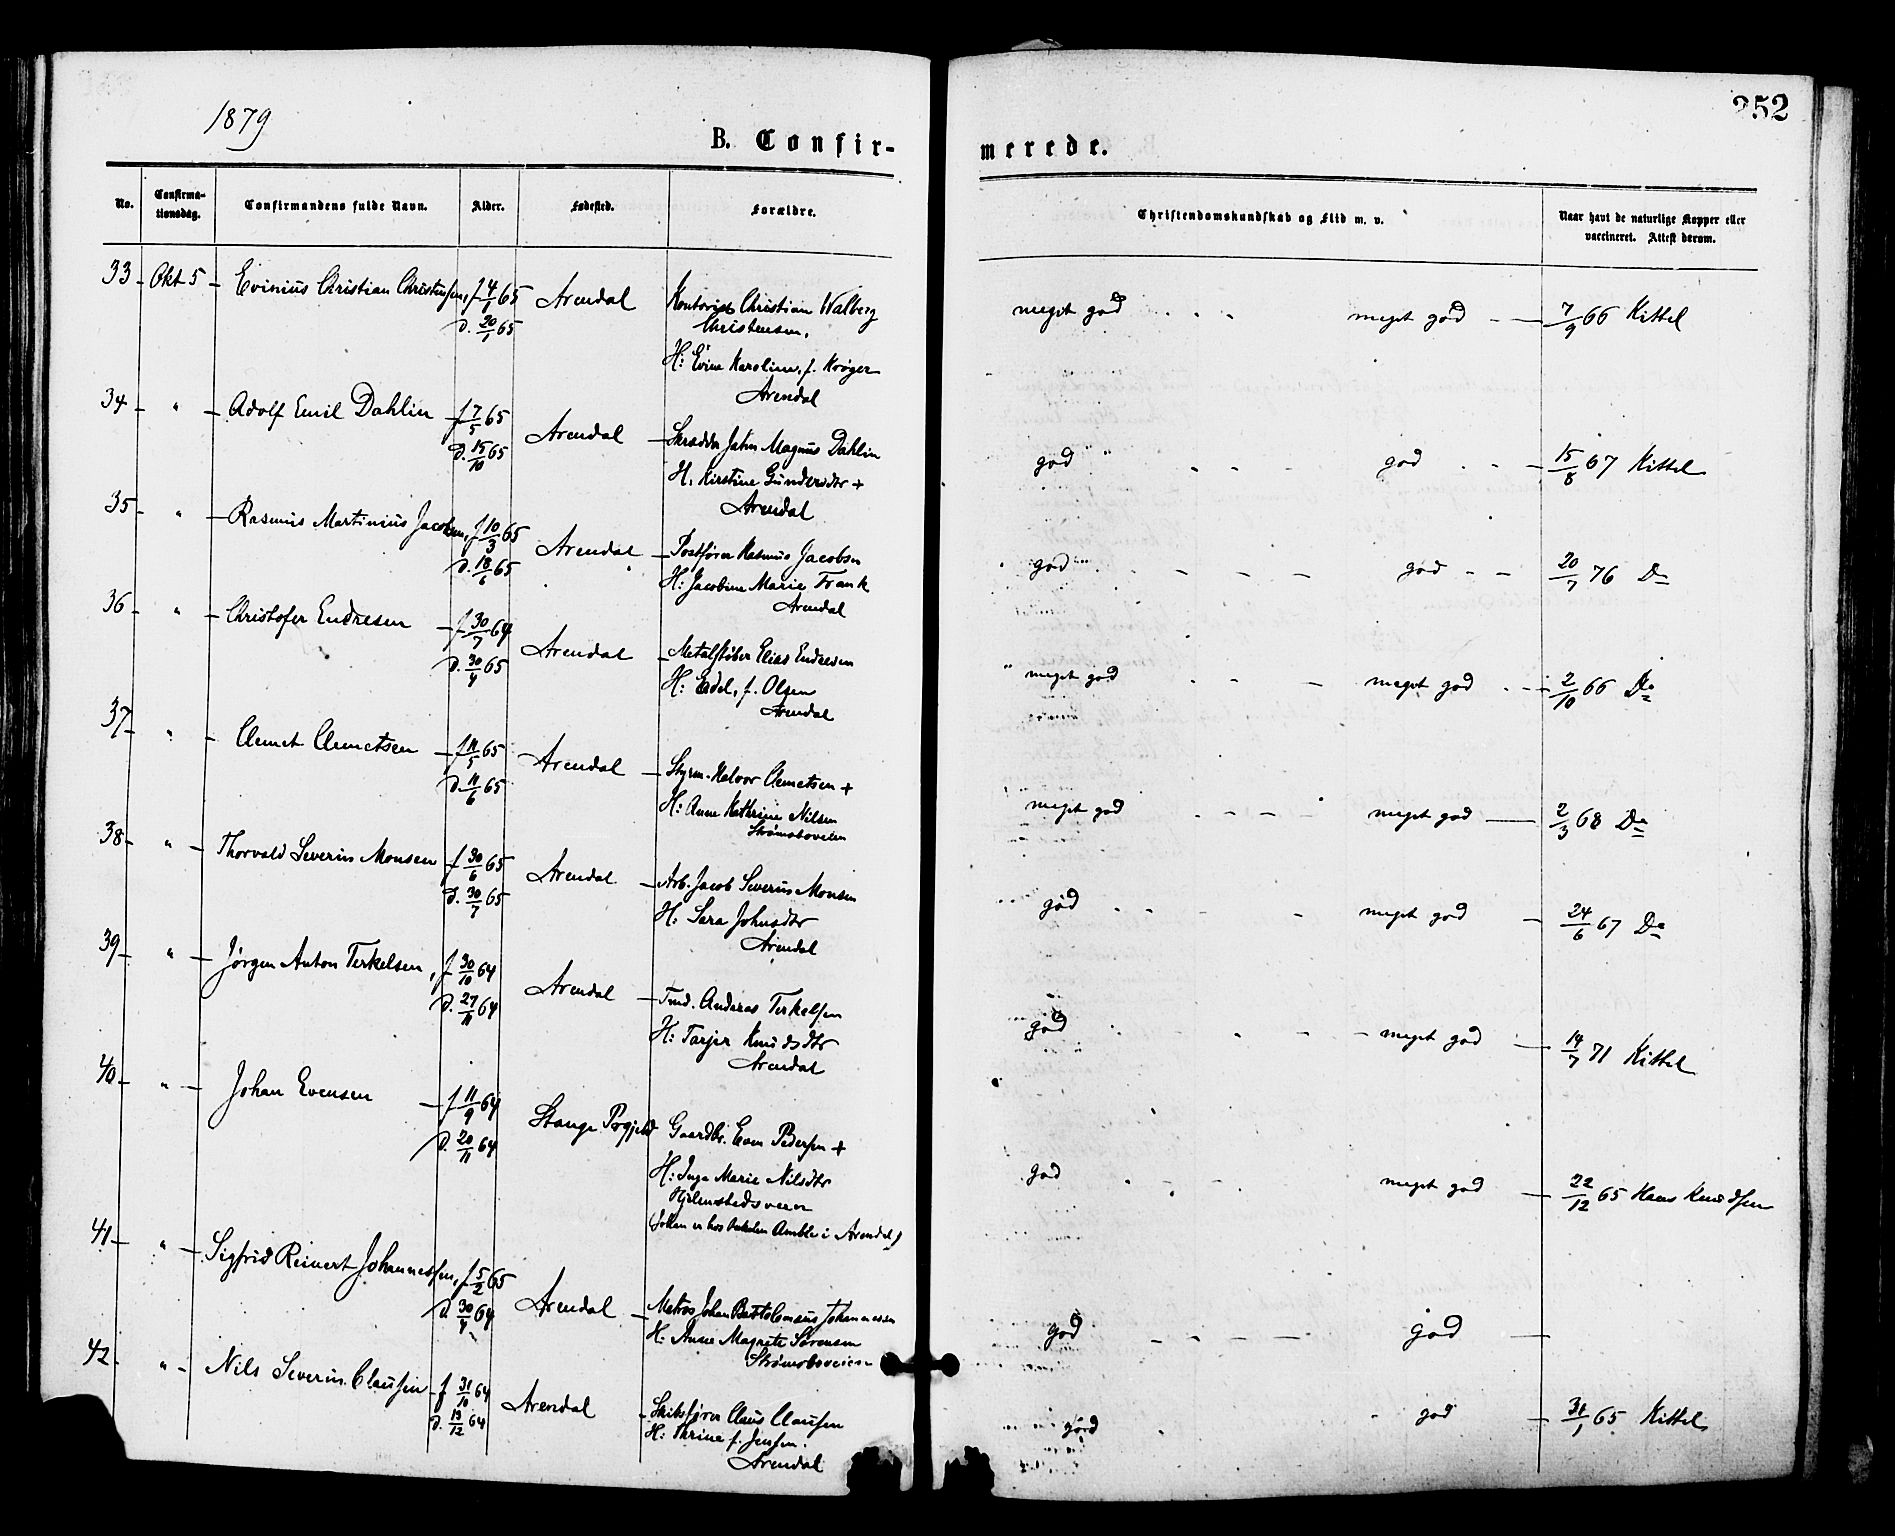 1879
252
B. Confir-
merede.
No.
Confirma-
tionsdag.
Confirmandens fulde Navn.
Alder.
Fødested.
Forældre.
Christendomskundskab og Flid m. v.
Naar havt de naturlige Kopper eller
vaccineret. Attest derom.
33 Okt 5 Evinius Christian Christensen, f 4/1 65 Arendal Kontorist Christian Walberg meget god meget god 7/9 66 Kittel
d. 20/1 65 Christensen,
H: Evine Karoline, f. Krøger
Arendal
34 " Adolf Emil Dahlin f 7/5 65 Arendal Skrædder Johan Magnus Dahlin god god 15/8 67 Kittel
d. 15/10 65 H. Kirstine Gundersdtr +
Arendal
35 " Rasmus Martinius Jacobsen, f 10/3 65 Arendal Postfører Rasmus Jacobsen god god 20/7 76 Do
d. 18/6 65 H: Jacobine Marie Frank
Arendal
36 " Christofer Endresen f 30/7 64 Arendal Metalstøber Elias Endresen meget god meget god 2/10 66 Do
d. 30/4 65 H: Edel, f. Olsen
Arendal
37 " Clemet Clemetsen f 11/5 65 Arendal Styrm. Halvor Clemetsen + meget god meget god 2/3 68 Do
d. 11/6 65 H: Anne Kathrine Nilsen
Strømsboveien
38 " Thorvald Severin Monsen f 30/6 65 Arendal Arb. Jacob Severin Monsen god meget god 24/6 67 Do
d. 30/7 65 H: Sara Johnsdtr
Arendal
39 " Jørgen Anton Terkelsen, f 30/10 64 Arendal Tmd. Andreas Terkelsen god meget god 14/7 71 Kittel
d. 27/11 64 H: Tarjer Knudsdtr
Arendal
40 " Johan Evensen f 11/9 64 Stange Prgjeld Gaardbr. Even Pedersen + god meget god 22/12 65 Hans Knudsen
d. 20/11 64 H: Inga Marie Nilsdtr
(Johan er hos Amble i Arendal)
41 " Sigfrid Reinert Johannessen, f 5/2 65 Arendal Matros Johan Bartolomæus Johannessen god god
d. 30/4 64 H: Anne Magrete Sørensen
Strømsboveien
42 " Nils Severin Clausen f 31/10 64 Arendal Skibsfører Claus Clausen god god 31/1 65 Kittel
d. 18/12 64 H: Thrine f. Jensen.
Arendal